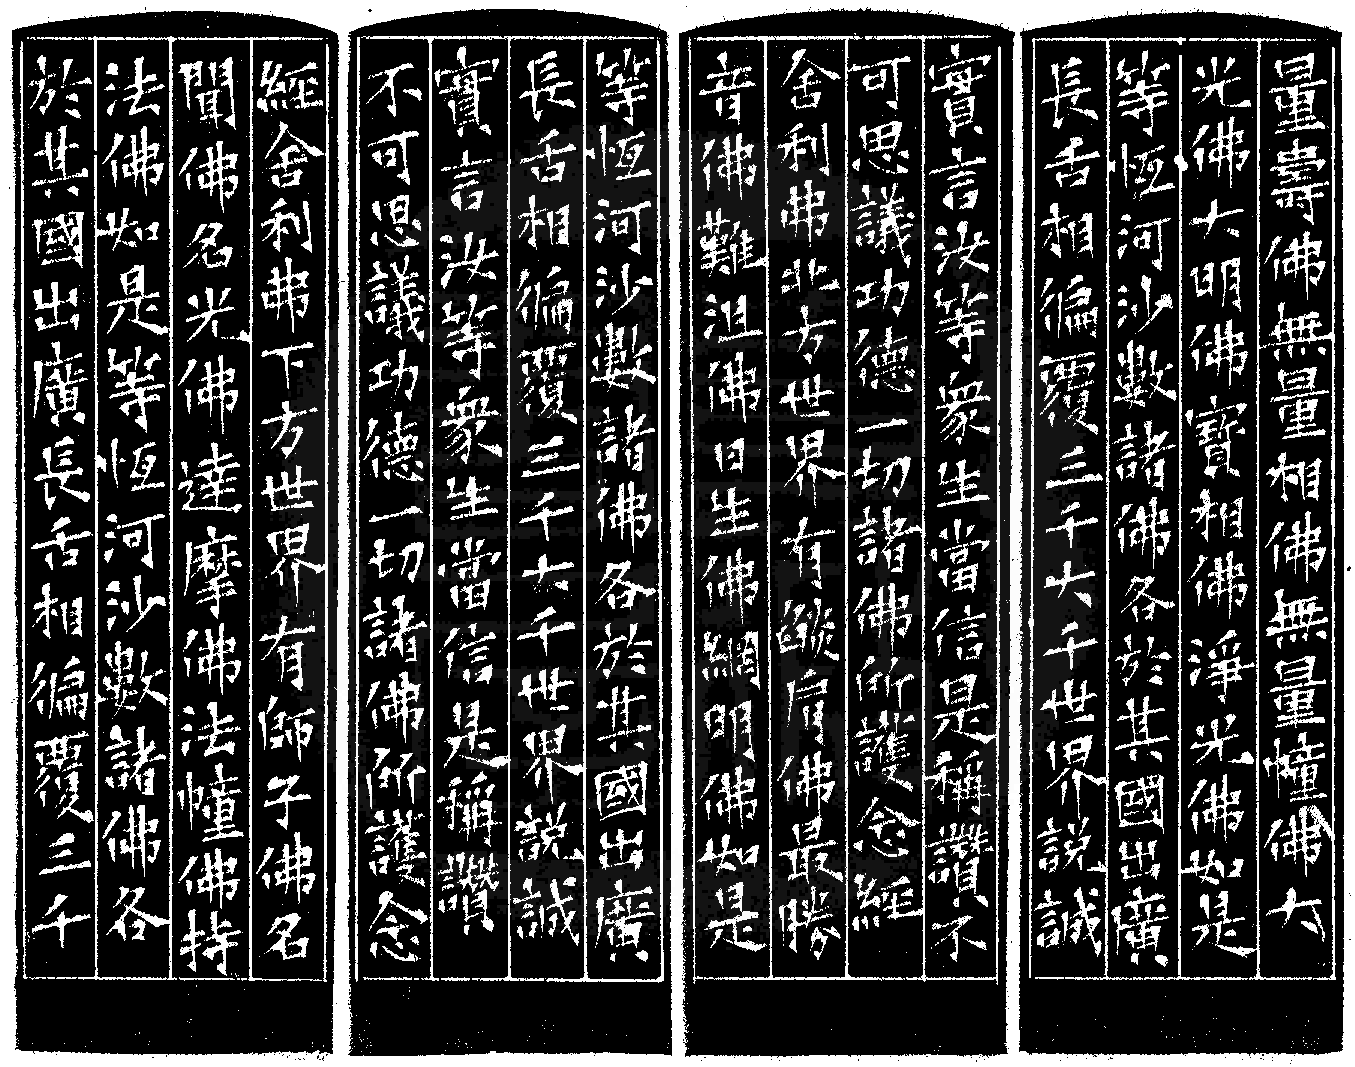 量壽佛無量相佛無量幢佛大
光佛大明佛寶相佛淨光佛如是
等恆河沙數諸佛各於其國出廣
長舌相徧覆三千大千世界說誠
實言汝等衆生當信是稱讚不
可思議功德一切諸佛所護念經
舍利弗北方世界有燄肩佛最勝
音佛難沮佛日生佛網明佛如是
等恆河沙數諸佛各於其國出廣
長舌相徧覆三千大千世界說誠
實言汝等衆生當信是稱讚
不可思議功德一切諸佛所護念
經舍利弗下方世界有師子佛名
聞佛名光佛達摩佛法幢佛持
法佛如是等恆河沙數諸佛各
於其國出廣長舌相徧覆三千